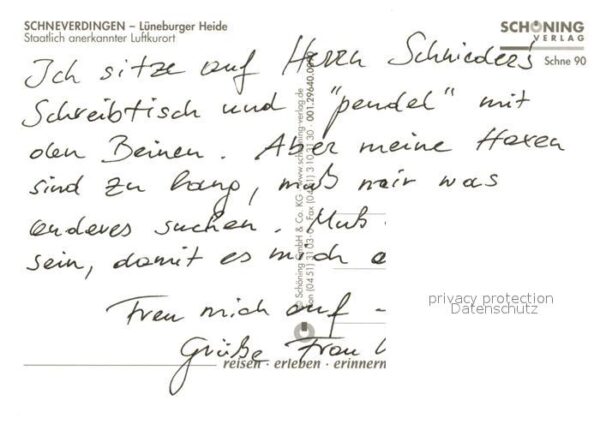 SCHNEVERDINGEN – Lüneburger Heide
Staatlich anerkannter Luftkurort
SCHÖNING
VERLAG
Schne 90
Ich sitze auf Herrn Schnieders
Schreibtisch und "pendel" mit
den Beinen. Aber meine Haxen
sind zu lang, muß mir was
anderes suchen. Muß
sein, damit es mich
Freu mich auf -
Grüße Frau
reisen · erleben · erinnern
© Schöning GmbH & Co. KG · www.schoening-verlag.de
001.29640.0
privacy protection
Datenschutz